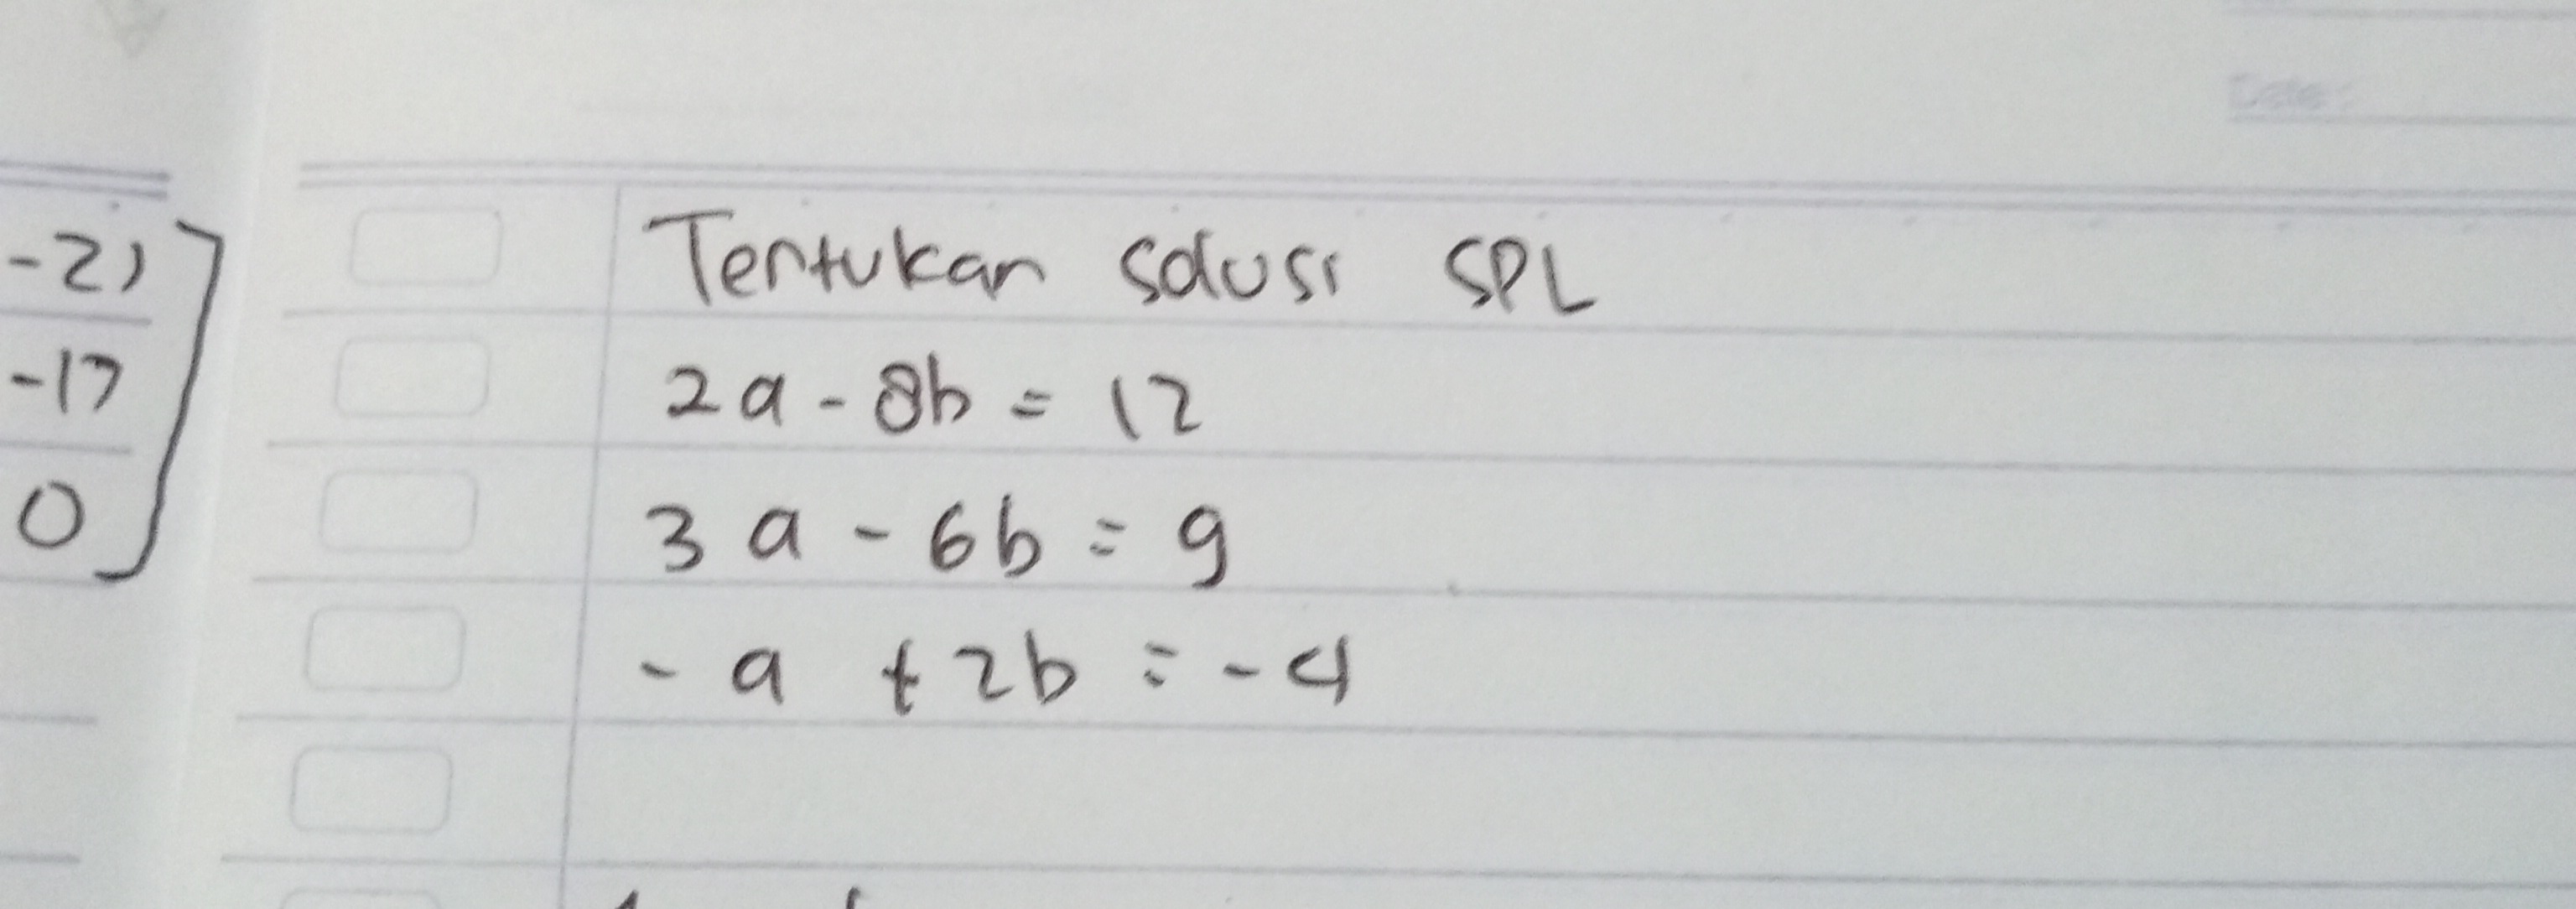 Date:
-21
-17
0
Tentukan solusi SPL
2a - 8b = 12
3a - 6b = 9
- a + 2b = -4